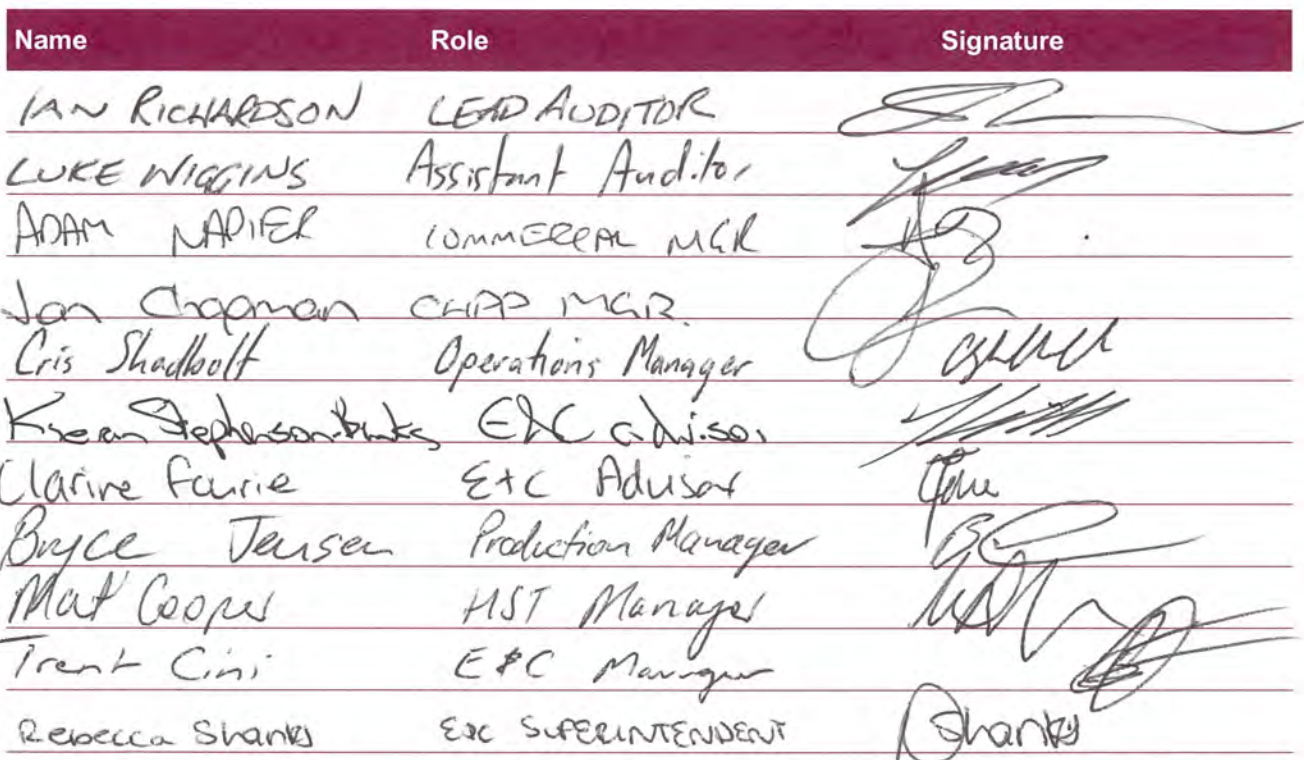 Name Role Signature
IAN RICHARDSON LEAD AUDITOR
LUKE WIGGINS Assistant Auditor
ADAM NAPIER COMMERCIAL MGR
Jon Chapman CHPP MGR.
Cris Shadbolt Operations Manager
Kieran Stephenson-Binks E&C advisor
Clarine Fourie E+C Advisor
Bryce Jensen Production Manager
Mat Cooper HST Manager
Trent Cini E&C Manager
Rebecca Shanks E&C SUPERINTENDENT Shanks